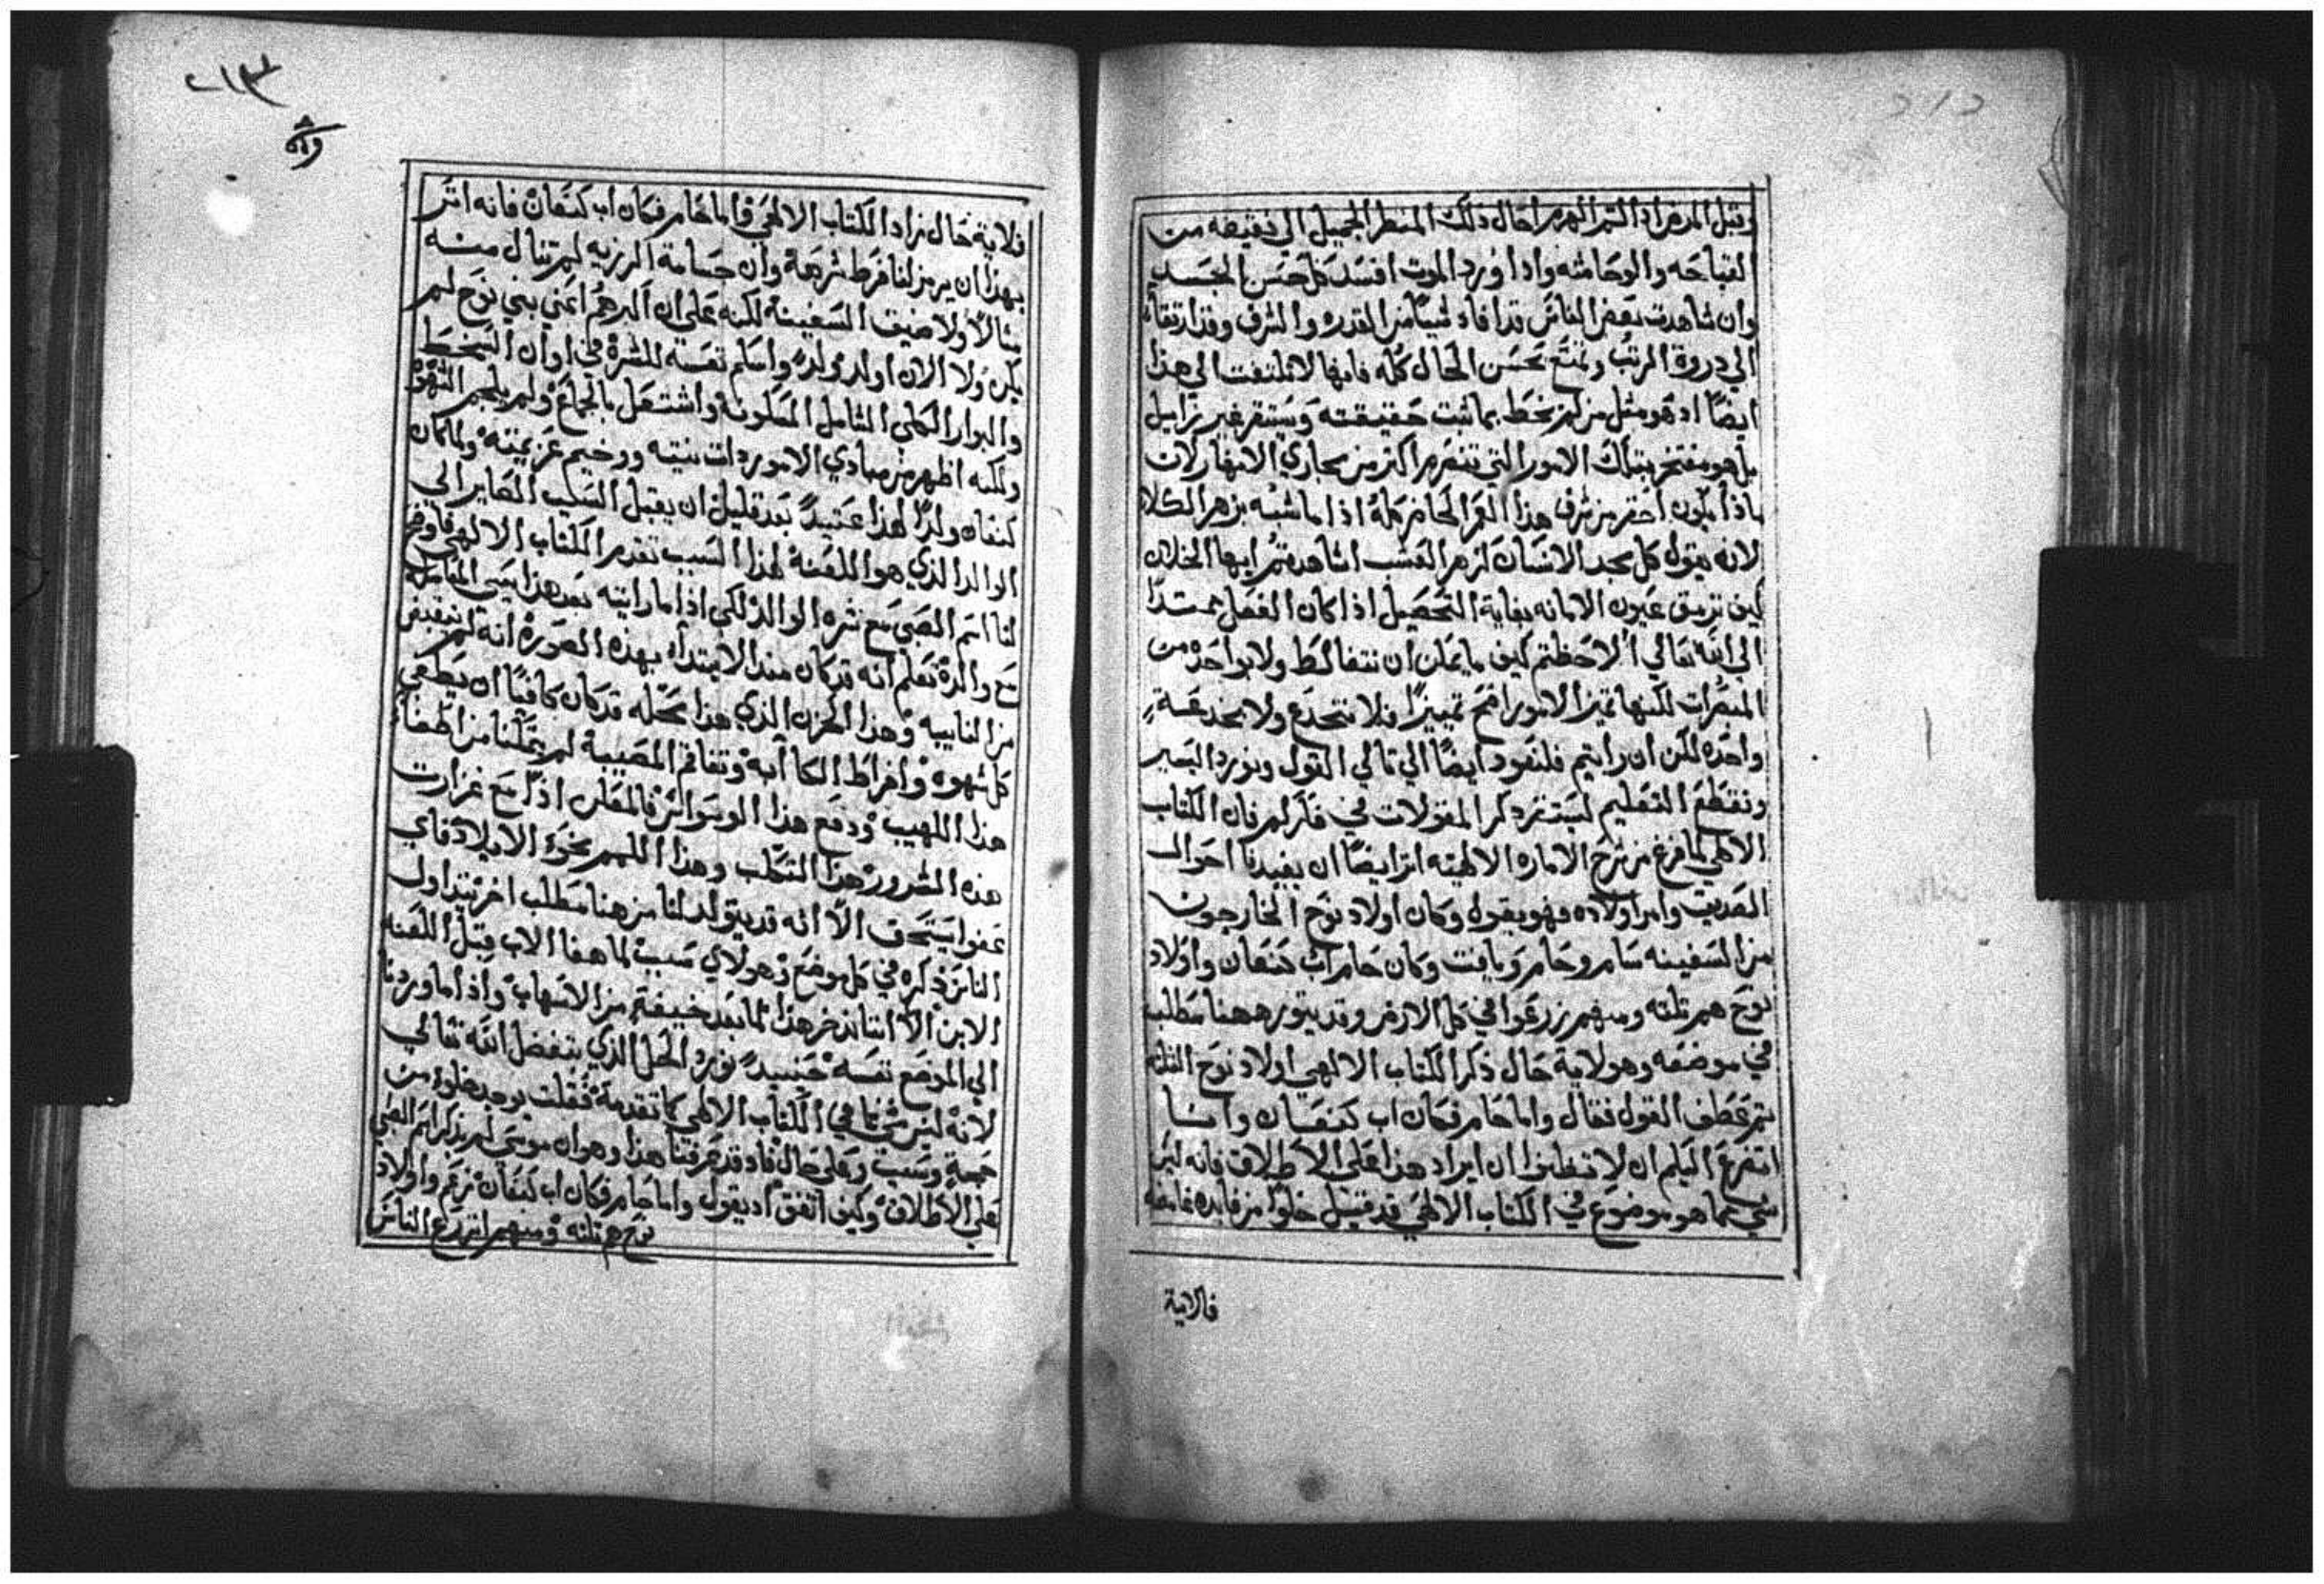 وقبل المرض اذا الم الهرم احال ذلك المنظر الجميل الي نقيضه من
القباحه والوحاشه واذا ورد الموت افسد كل حسن الجسد
وان شاهدت بعض الناس قد افاد شيا من القدره والشرف وقد ارتقا
الي دروة المرتب وتمتع بحسن الحال كله فانها لا تلتفت الي هذا
ايضا اد هو مثل من لم يخط بما ثبت حقيقته ويستقر غير زايل
بل هو مفتخر بتلك الامور التي تنصرم اكثر من مجاري الانهار لان
ماذا يكون احقر من شرف هذا العز الحاضر كله اذا ما شبه بزهر الكلا
لانه يقول كل مجد الانسان كزهر العشب اشاهدتم ايها الخلان
كيف ترمق عيون الامانه بغاية التحصيل اذا كان العقل ممتدا
الي الله تعالي الاحظتم كيف ما يمكن ان نتغالط ولا بواحده من
المبصرات لكنها تميز الامور اصح تمييزا فلا تتخدع ولا بخدعة
واحده لكن ان رايتم فلنعود ايضا الي تالي القول ونورد اليسير
ونقطع التعليم ليستقر ذكر المقولات في فكركم فان الكتاب
الالهي لما فرغ من شرح الاماره الالهيه اثر ايضا ان يفيدنا احوال
الصديق وامر اولاده فهو يقول وكان اولاد نوح الخارجون
من السفينه سام وحام ويافت وكان حام اب كنعان واولاد
نوح هم تلته ومنهم زرعوا في كل الارض وقد يتوره ههنا مطلب
في موضعه وهو لاية حال ذكر الكتاب الالهي اولاد نوح التلته
ثم عطف القول فقال واما حام فكان اب كنعان وانا
اتضرع اليكم ان لا تظنوا ان ايراد هذا على الاطلاق فانه ليس
شي مما هو موضوع في الكتاب الالهي قد قيل خلوا من فايده غامضه
فلاية
فلاية حال زاد الكتاب الالهي واما حام فكان اب كنعان فانه اثر
بهذا ان يرمز لنا فرط شرهه وان جسامة الرزيه لم تنال منه
منالا ولا ضيق السفينة لكنه على ان اكبرهم اعني بني نوح لم
يكن ولا الان اولد ولدا واسلم نفسه للشره في اوان السخط
والبوار الكلي الشامل المسكونة واشتغل بالجماع ولم يلجم الشهوة
ولكنه اظهر من مبادي الامور ردات نيته ووخيم عزيمته ولما كان
كنعان ولدا لهذا عتيدا بعد قليل ان يقبل السلب الصاير الى
الوالد الذي هو اللعنة لهذا السبب تقدم الكتاب الالهي فاوضح
لنا اسم الصبي مع شره الوالد لكي اذا ما رايته بعد هذا يسي المعاملة
مع والده تعلم انه قد كان منذ الابتداء بهذه الصورة انه لم ينقبض
من النايبه وهذا الحزن الذي هذا محله قد كان كافيا ان يطفي
كل شهوه وافراط الكاابه وتفاقم المصيبة لم يمكنا من اطفاء
هذا اللهيب ودفع هذا الوسواس فالمعلن اذا مع غزارت
هذه الشرور هذا التكلب وهذا اللهم نحو الايلاد فاي
عفوا يستحق الا انه قد يتولد لنا من هنا مطلب اخر يتداول
الناس ذكره في كل موضع وهو لاي سبب لما هفا الاب قبل اللعنه
الابن الا اننا ندخر هذا لما بعد خيفة من الاسهاب واذا ما وردنا
الي الموضع نفسه حنيد نورد الحل الذي يتفضل الله تعالي
لانه ليس شي في الكتاب الالهي كما تقدمة فقلت يوجد خلوا من
جهة وسبب وعلى حال فاد قد عرفنا هذا وهو ان موسى لم يذكر اسم الصبي
على الاطلاق وكيف اتفق اد يقول واما حام فكان اب كنعان نزعم واولاد
نوح هم تلته ومنهم انزرع الناس